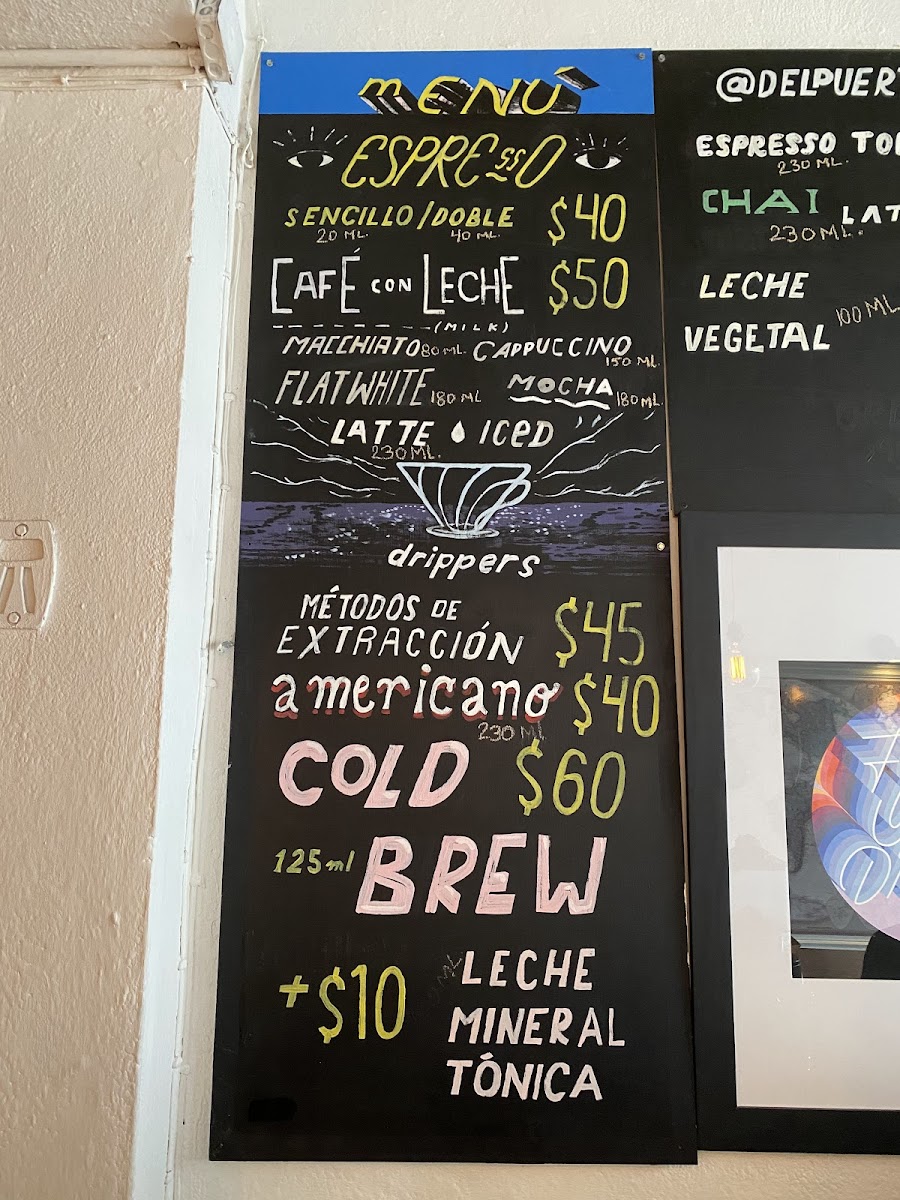 MENÚ
ESPRESSO
SENCILLO/DOBLE $40
20 ML. 40 ML.
CAFÉ CON LECHE $50
(MILK)
MACCHIATO 80 ML. CAPPUCCINO
150 ML.
FLAT WHITE 180 ML MOCHA 180 ML.
LATTE ICED
230 ML.
drippers
MÉTODOS DE
EXTRACCIÓN $45
americano $40
230 ML
COLD $60
125 ml BREW
+ $10 LECHE
MINERAL
TÓNICA
@DELPUER
ESPRESSO TO
230 ML.
CHAI LAT
230 ML.
LECHE
VEGETAL 100 ML